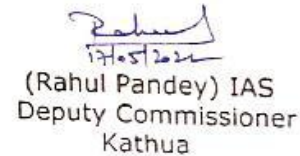 17/05/2022
(Rahul Pandey) IAS
Deputy Commissioner
Kathua